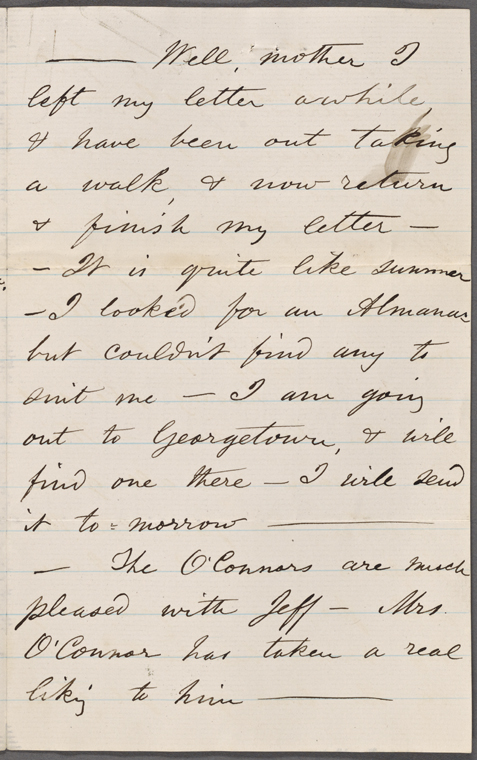 —— Well, mother I
left my letter awhile,
& have been out taking
a walk, & now return
& finish my letter —
– It is quite like summer
– I looked for an Almanac
but couldn't find any to
suit me — I am going
out to Georgetown, & will
find one there – I will send
it to-morrow ——
— The O'Connors are much
pleased with Jeff – Mrs.
O'Connor has taken a real
liking to him ——